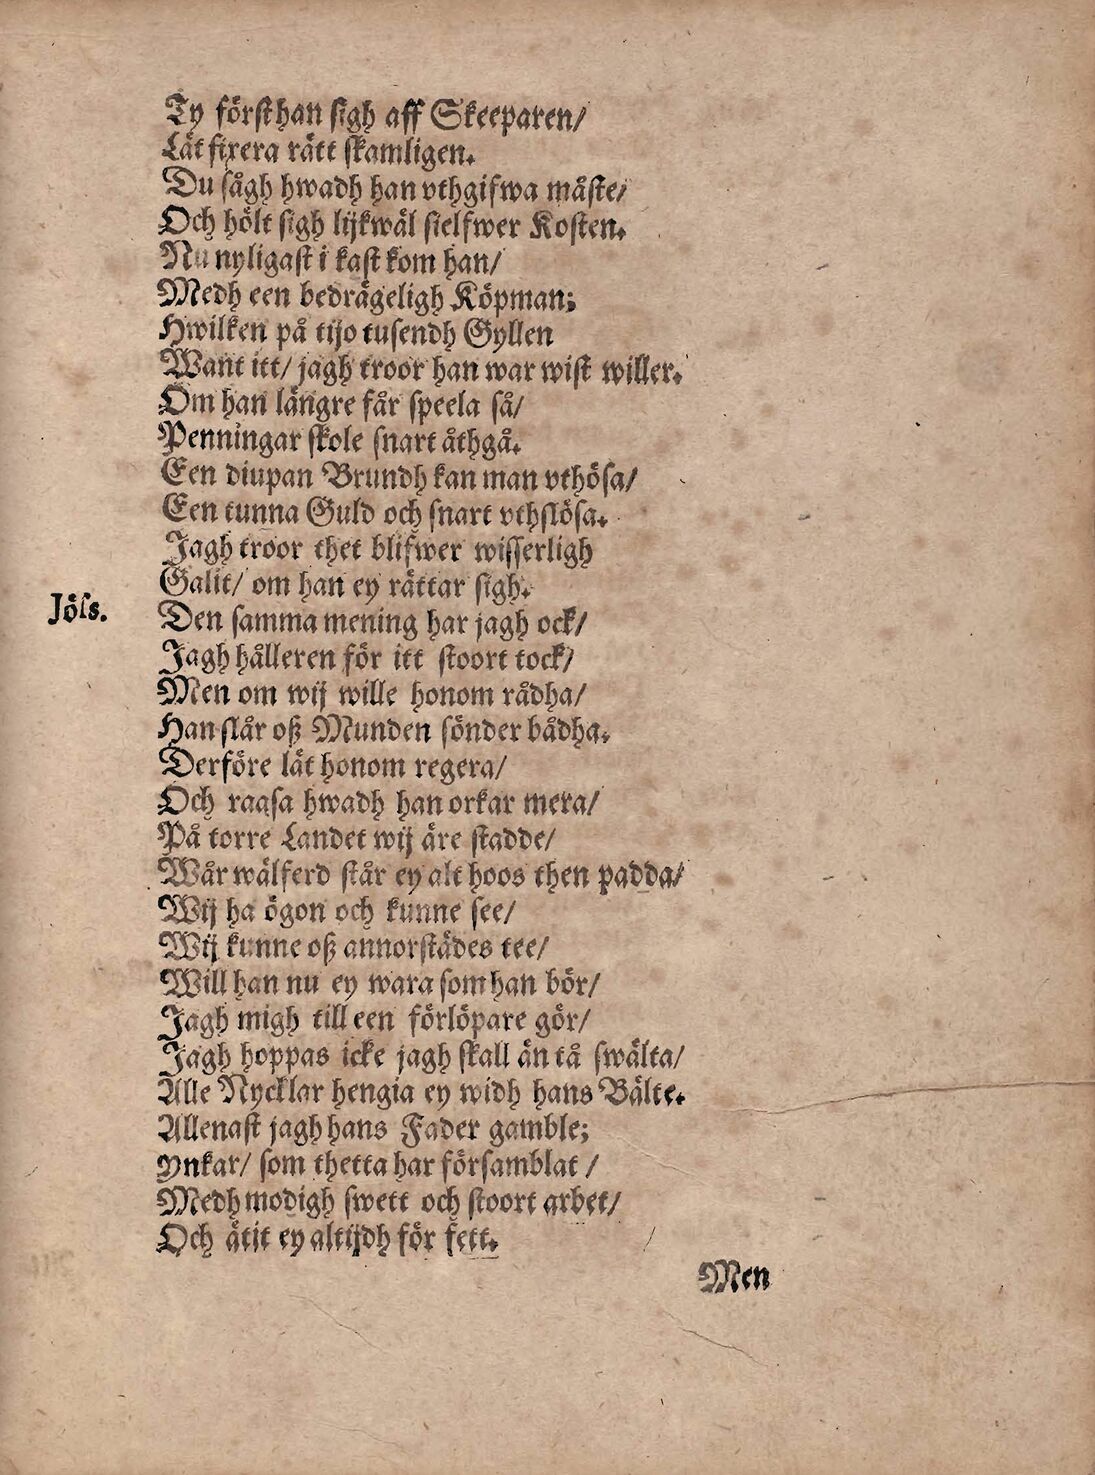 Ty först han sigh aff Skeeparen/
Lät fixera rätt skamligen.
Du sågh hwadh han vthgifwa måste/
Och hölt sigh lijkwäl sielfwer Kosten.
Nu nyligast i kast kom han/
Medh een bedrägeligh Köpman;
Hwilken på tijo tusendh Gyllen
Want itt/ jagh troor han war wist willer.
Om han längre får speela så/
Penningar skole snart åthgå.
Een diupan Brundh kan man vthösa/
Een tunna Guld och snart vthslösa.
Jagh troor thet blifwer wisserligh
Galit/ om han ey rättar sigh.
Jöſs. Den samma mening har jagh ock/
Jagh hålleren för itt stoort tock/
Men om wij wille honom rådha/
Han slår oß Munden sönder bådha.
Derföre lät honom regera/
Och raasa hwadh han orkar mera/
På torre Landet wij äre stadde/
Wår wälferd står ey alt hoos then padda/
Wij ha ögon och kunne see/
Wij kunne oß annorstädes tee/
Will han nu ey wara som han bör/
Jagh migh till een förlöpare gör/
Jagh hoppas icke jagh skall än tå swälta/
Alle Nycklar hengia ey widh hans Bälte.
Allenast jagh hans Fader gamble;
Ynkar/ som thetta har församblat /
Medh modigh swett och stoort arbet/
Och ätit ey altijdh för fett.
Men